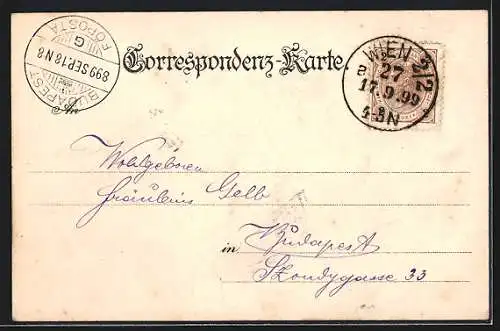 Correspondenz-Karte.
BUDAPEST
899 SEP 18 N 8
FŐPOSTA
WIEN 3/2
27
17.9.99
An
Wohlgeboren
Fräulein Gelb
in Budapest
33